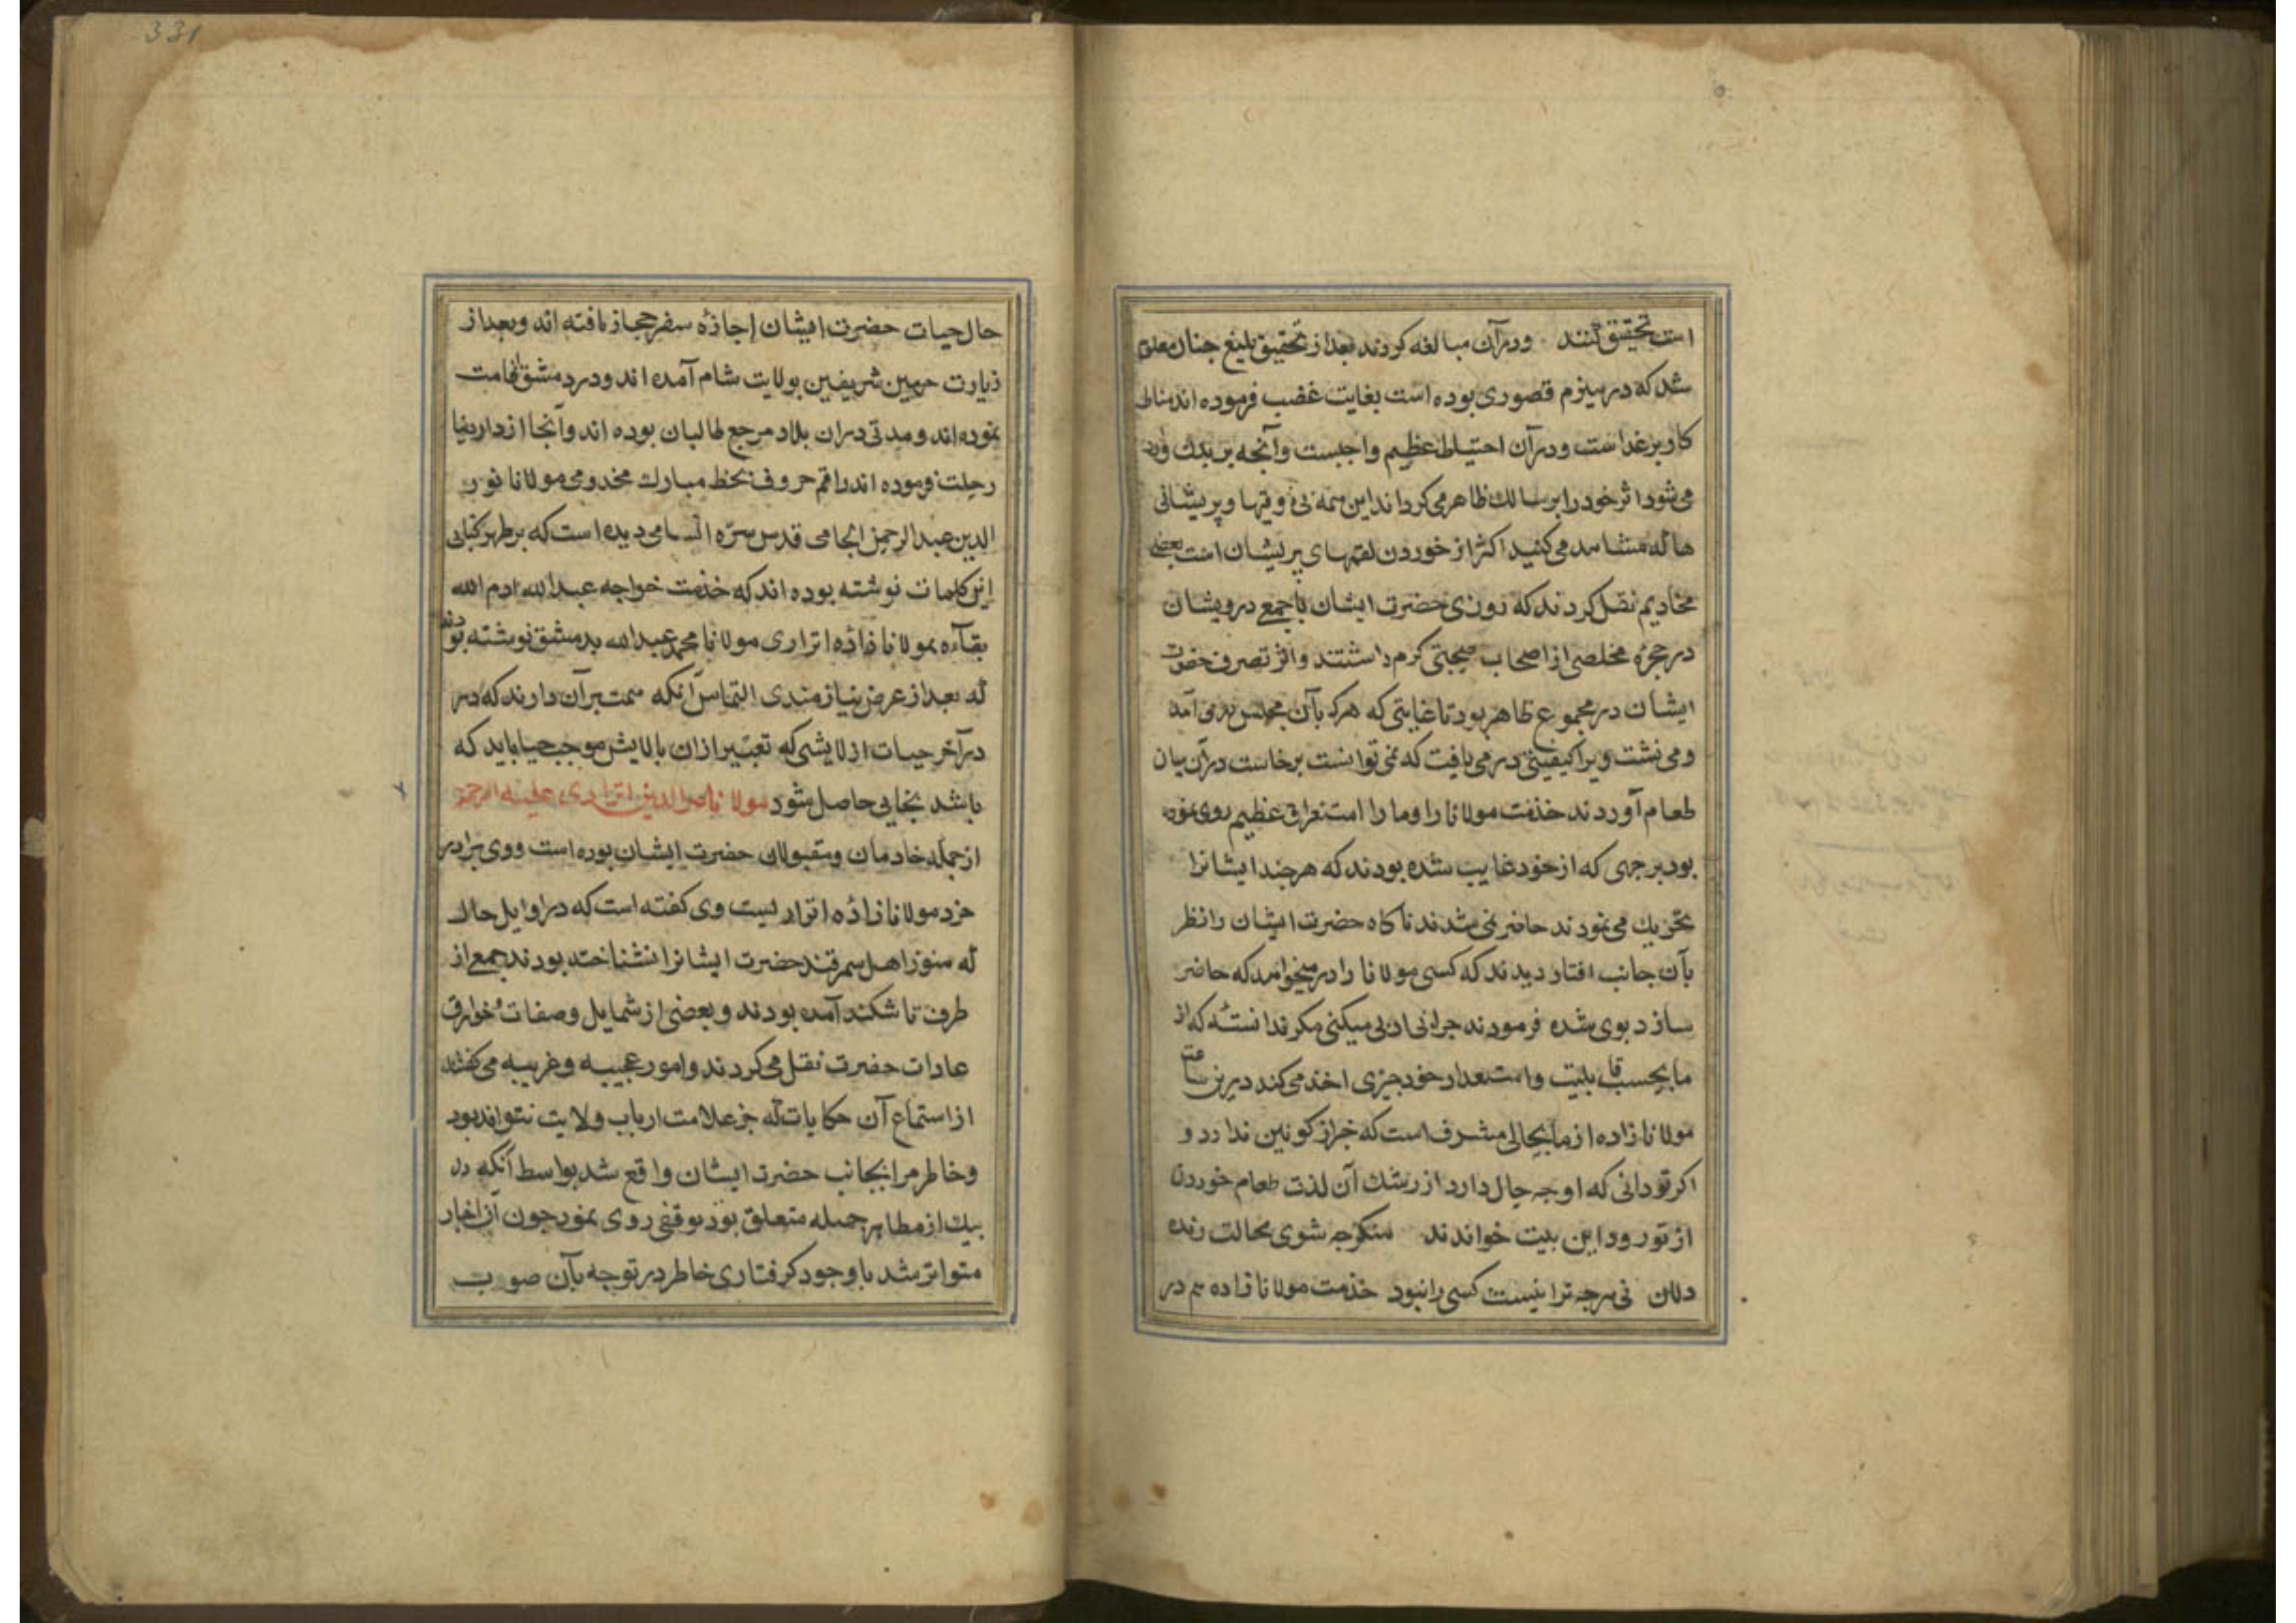 است تحقیق کنند ودرآن مبالغه کردند بعد از تحقیق بلیغ جنان معلوم
شد که در هیزم قصوری بوده است بغایت غضب فرموده اند مناط
کار بر غداست ودرآن احتیاط عظیم واجبست وآنجه بر بدن وارد
می شود اثر خود را بر سالک ظاهر می کرداند این همه بی ذوقیها وپریشانی
ها که مشاهده می کنید اکثر از خوردن لقمهای پریشان است بعضی
مخادیم نقل کردند که روزی حضرت ایشان با جمع درویشان
در حجره مخلصی از اصحاب صحبتی کرم داشتند واثر تصرف حضرت
ایشان در مجموع ظاهر بود تا غایتی که هرکه بآن مجلس در می آمد
ومی نشت ویرا کیفیتی در می یافت که نمی توانست برخاست درآن میان
طعام آوردند خذمت مولانا را وما را استغراق عظیم روی نموده
بود بر جهی که از خود غایب شده بودند که هر جند ایشانرا
تحریک می نمودند حاضر نمی شدند ناکاه حضرت ایشان را نظر
بآن جانب افتاد دیدند که کسی مولانا را در میخواهد که حاضر
سازد بوی شده فرمودند جرا بی ادبی میکنی مکر ندانستهٔ که از
ما بحسب قابلیت واستعداد خود جیزی اخذ می کند درین ساعت
مولانا زاده از ما بحالی مشرف است که خبر از کونین ندارد و
اکر تو دانی که او جه حال دارد از رشک آن لذت طعام خوردن
از تو رود این بیت خواندند منکر جه شوی بحالت زنده
دلان نی هرجه ترا نیست کسی را نبود خذمت مولانا زاده هم در
331
حال حیات حضرت ایشان اجازهٔ سفر حجاز یافته اند وبعد از
زیارت حرمین شریفین بولایت شام آمده اند ودر دمشق اقامت
نموده اند ومدتی دران بلاد مرجع طالبان بوده اند وآنجا از دار دنیا
رحلت فرموده اند راقم حروف بخط مبارک مخدومی مولانا نور
الدین عبد الرحمن الجامی قدس سره السامی دیده است که بر ظهر کتابی
این کلمات نوشته بوده اند که خذمت خواجه عبد الله ادم الله
بقآءه بمولانا زادهٔ اتراری مولانا محمد عبد الله بدمشق نوشته بودند
که بعد از عرض نیازمندی التماس آنکه همت برآن دارند که در
درآخر حیات از لایشی که تعبیر ازان بالایش موجب حیا باید که
باشد نجاتی حاصل شود مولانا ناصر الدین اتراری علیه الرحمة
از جمله خادمان ومقبولان حضرت ایشان بوده است ووی برادر
خرد مولانا زادهٔ اترار یست وی کفته است که در اوایل حال
که هنوز اهل سمرقند حضرت ایشانرا نشناخته بودند جمع از
طرف تاشکند آمده بودند وبعضی از شمایل وصفات وخوارق
عادات حضرت نقل می کردند وامور عجیبه وغریبه می کفتند
از استماع آن حکایات که جز علامت ارباب ولایت نتواند بود
وخاطر مرا بجانب حضرت ایشان واقع شد بواسط آنکه دل
بیک از مظاهر جمیله متعلق بود توقفی روی نمود جون آن اخبار
متواتر شد با وجود کرفتاری خاطر در توجه بآن صوب